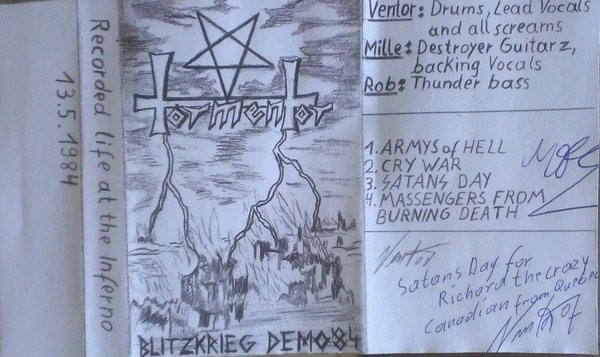 Recorded life at the Inferno
13.5.1984
Tormentor
BLITZKRIEG DEMO'84
Ventor: Drums, Lead Vocals
and all screams
Mille: Destroyer Guitarz,
backing Vocals
Rob: Thunder bass
1. ARMYS of HELL
2. CRY WAR
3. SATANS DAY
4. MASSENGERS FROM
BURNING DEATH
Ventor
Satans Day for
Richard the crazy
Canadian from Quebec